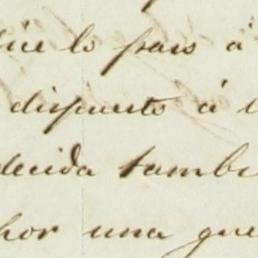 lo paso á
dispuesto á
decida tambi
hor una que